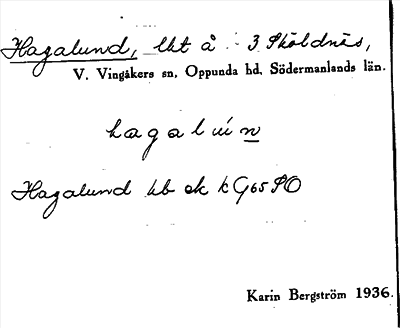 Hagalund, lht å 3 Sköldnäs,
V. Vingåkers sn, Oppunda hd, Södermanlands län.
hagalui n
Hagalund hb ek kG65SO
Karin Bergström 1936.